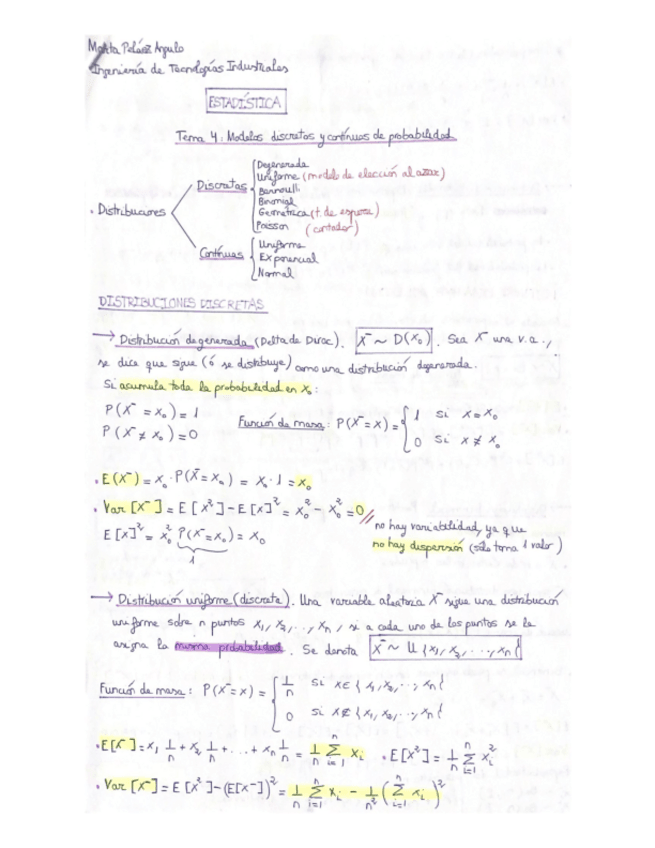 Marta Peláez Angulo
Ingeniería de Tecnologías Industriales
ESTADÍSTICA
Tema 4: Modelos discretos y contínuos de probabilidad
Degenerada
Uniforme (modelo de elección al azar)
Discretas
Bernoulli
Binomial
· Distribuciones
Geométrica (t. de espera)
Poisson (contador)
Contínuas
Uniforme
Exponencial
Normal
DISTRIBUCIONES DISCRETAS
→ Distribución degenerada (Delta de Dirac). X ~ D(x₀). Sea X una v.a.,
se dice que sigue (ó se distribuye) como una distribución degenerada.
Si acumula toda la probabilidad en x₀:
P(X = x₀) = 1
P(X ≠ x₀) = 0
Función de masa: P(X = x) = { 1 si x = x₀
0 si x ≠ x₀
· E(X) = x₀ · P(X = x₀) = x₀ · 1 = x₀
· Var [X] = E[X²] - E[X]² = x₀² - x₀² = 0 //
no hay variabilidad, ya que
no hay dispersión (sólo toma 1 valor)
E[X]² = x₀² P(X = x₀) = x₀
1
→ Distribución uniforme (discreta). Una variable aleatoria X sigue una distribución
uniforme sobre n puntos x₁, x₂, ..., xₙ, si a cada uno de los puntos se le
asigna la misma probabilidad. Se denota X ~ U{x₁, x₂, ..., xₙ}
Función de masa: P(X = x) = { 1/n si x ∈ {x₁, x₂, ..., xₙ}
0 si x ∉ {x₁, x₂, ..., xₙ}
· E[X] = x₁ 1/n + x₂ 1/n + ... + xₙ 1/n = 1/n Σᵢ₌₁ⁿ xᵢ · E[X²] = 1/n Σᵢ₌₁ⁿ xᵢ²
· Var [X] = E[X²] - (E[X])² = 1/n Σᵢ₌₁ⁿ xᵢ - 1/n² (Σᵢ₌₁ⁿ xᵢ)²